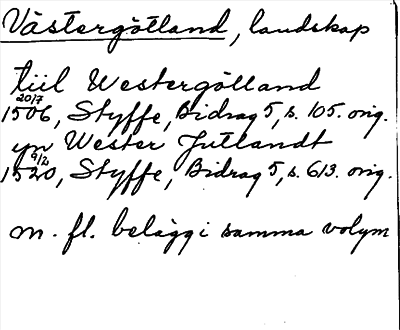 Västergötland, landskap
tiil Westergötland
20/7
1506, Styffe, Bidrag 5, s. 105. orig.
yn Wester Jutlandt
9/2
1520, Styffe, Bidrag 5, s. 613. orig.
m. fl. belägg i samma volym